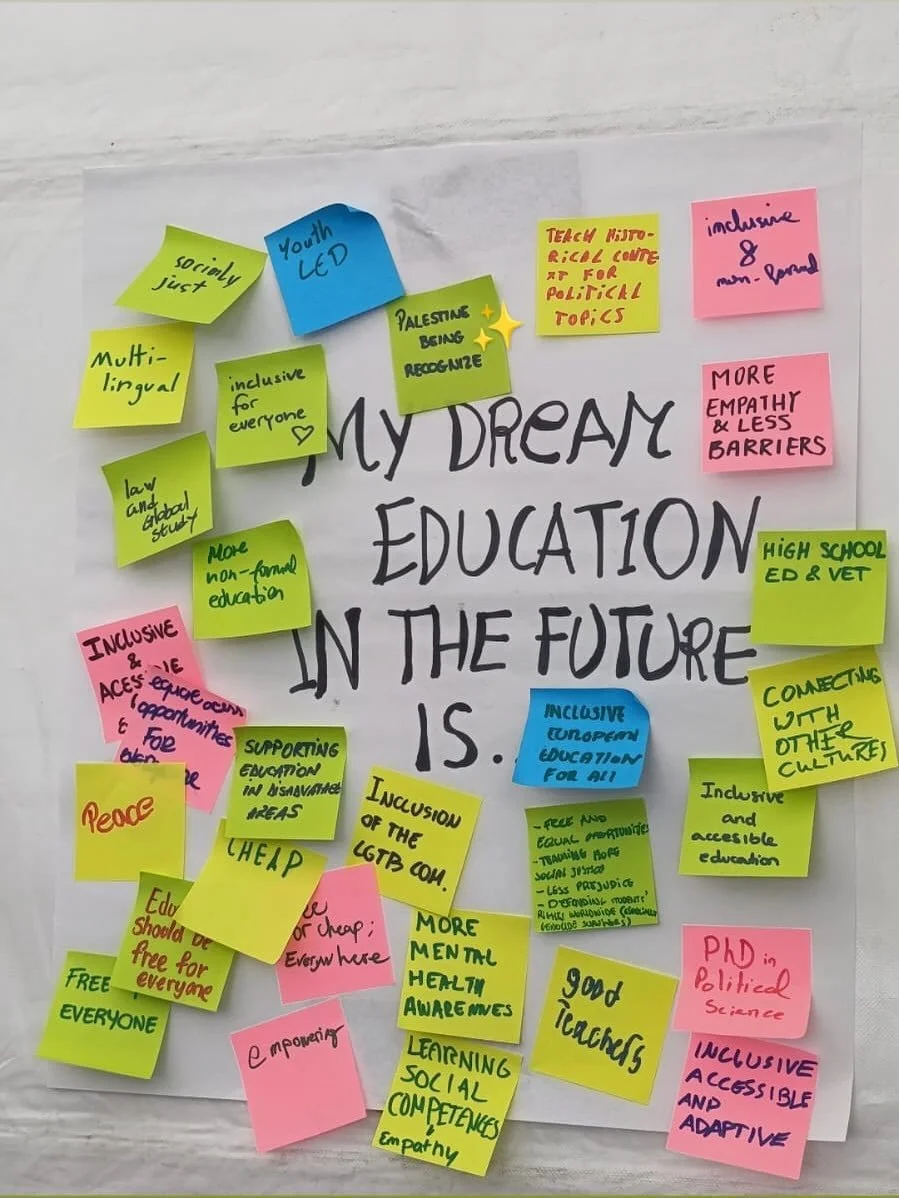 socially
just
Youth
LED
PALESTINE
BEING
RECOGNIZE
TEACH HISTO-
RICAL CONTE
XT FOR
POLITICAL
TOPICS
inclusive
&
non-formal
Multi-
lingual
inclusive
for
everyone ♡
MORE
EMPATHY
& LESS
BARRIERS
MY DREAM
EDUCATION
IN THE FUTURE
IS..
law
and
Global
study
More
non-formal
education
HIGH SCHOOL
ED & VET
INCLUSIVE
&
opportunities
FOR
CONNECTING
WITH
OTHER
CULTURES
INCLUSIVE
EUROPEAN
EDUCATION
FOR ALL
SUPPORTING
EDUCATION
IN DISADVANTAGE
AREAS
Peace
INCLUSION
OF THE
LGTB COM.
Inclusive
and
accesible
education
- FREE AND
EQUAL OPORTUNITIES
- TEACHING MORE
SOCIAL JUSTICE
- LESS PREJUDICE
- DEFENDING STUDENTS'
RIGHTS WORLDWIDE (ESPECIALLY
GENOCIDE SURVIVORS)
CHEAP
Edu
should be
free for
everyone
or cheap;
Everywhere
MORE
MENTAL
HEALTH
AWARENNES
good
Teachers
PhD in
Political
Science
FREE
EVERYONE
empowering
LEARNING
SOCIAL
COMPETENCES
&
Empathy
INCLUSIVE
ACCESSIBLE
AND
ADAPTIVE